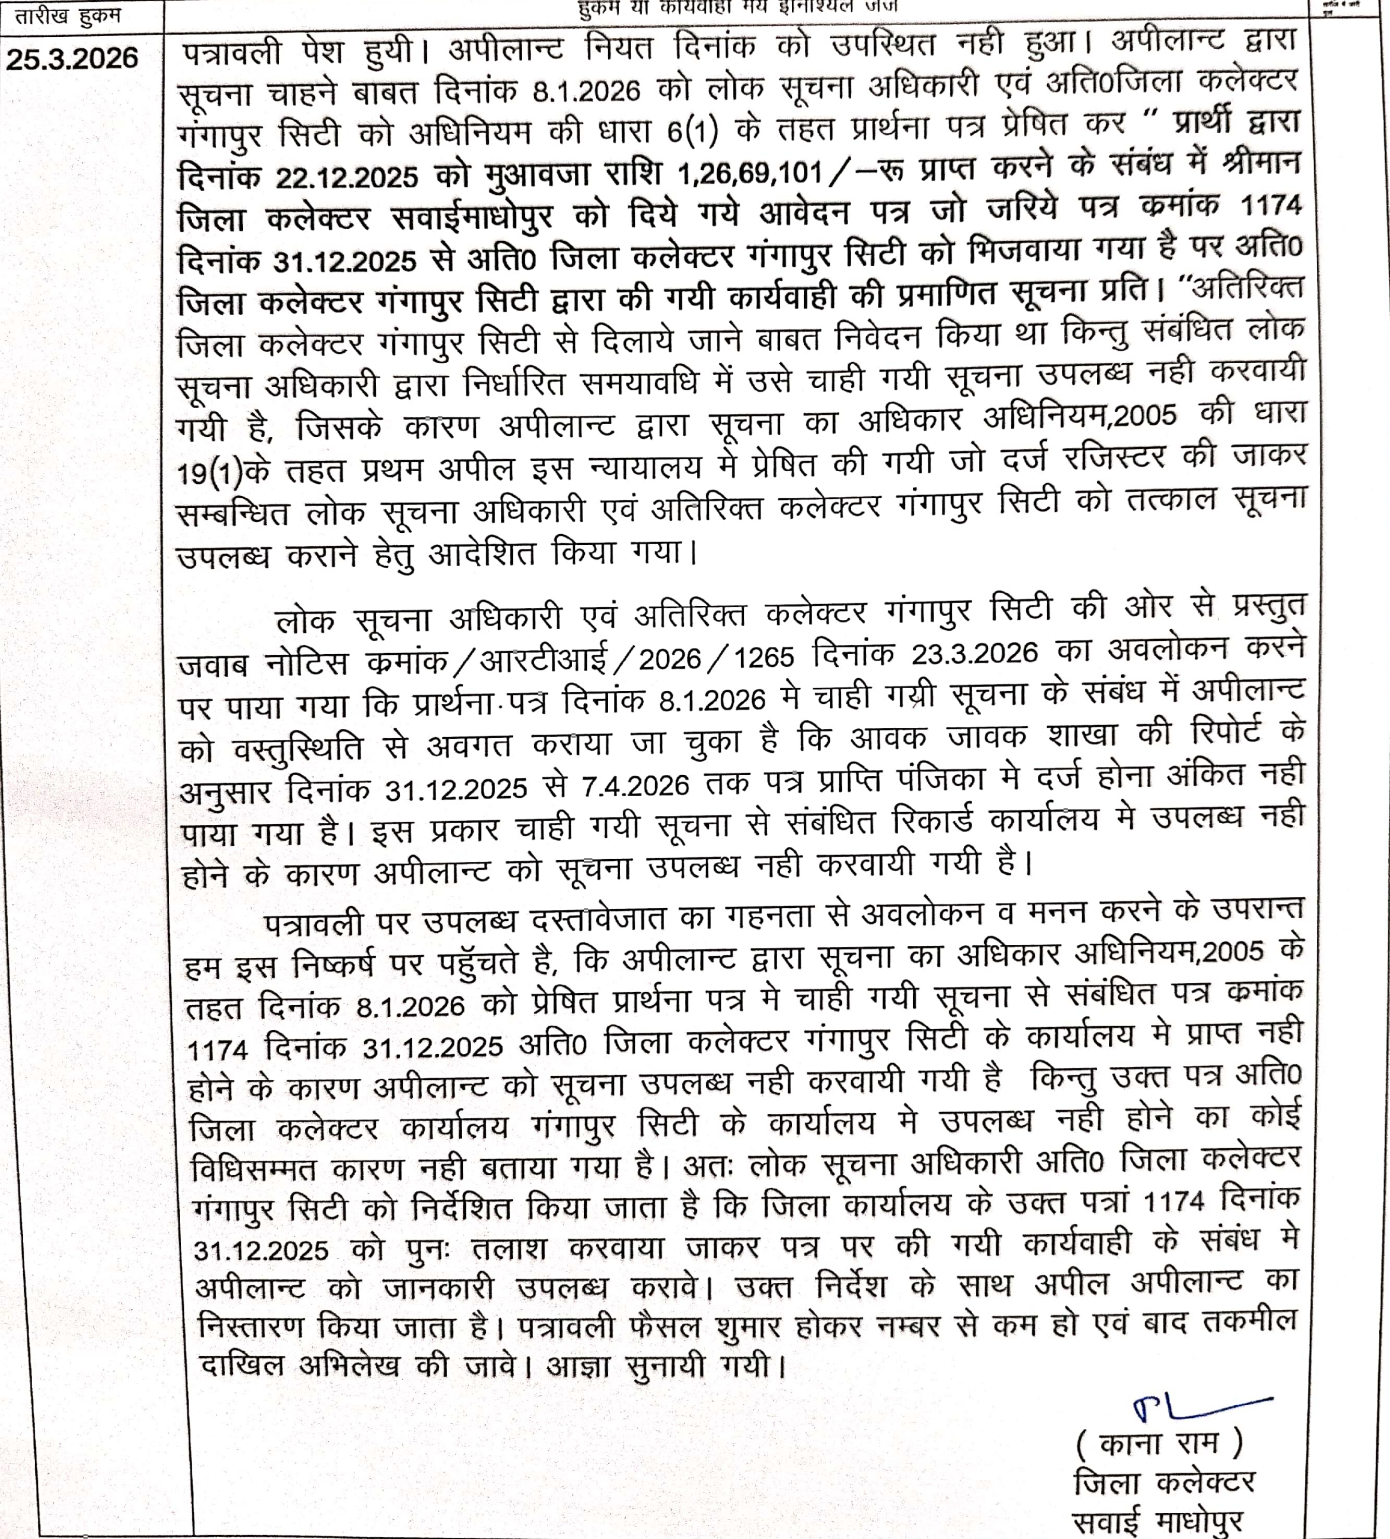 तारीख हुकम
हुकम या कार्यवाही मय इनिशियल जज
25.3.2026
पत्रावली पेश हुयी। अपीलान्ट नियत दिनांक को उपस्थित नही हुआ। अपीलान्ट द्वारा
सूचना चाहने बाबत दिनांक 8.1.2026 को लोक सूचना अधिकारी एवं अति0जिला कलेक्टर
गंगापुर सिटी को अधिनियम की धारा 6(1) के तहत प्रार्थना पत्र प्रेषित कर " प्रार्थी द्वारा
दिनांक 22.12.2025 को मुआवजा राशि 1,26,69,101/–रू प्राप्त करने के संबंध में श्रीमान
जिला कलेक्टर सवाईमाधोपुर को दिये गये आवेदन पत्र जो जरिये पत्र क्रमांक 1174
दिनांक 31.12.2025 से अति0 जिला कलेक्टर गंगापुर सिटी को भिजवाया गया है पर अति0
जिला कलेक्टर गंगापुर सिटी द्वारा की गयी कार्यवाही की प्रमाणित सूचना प्रति। "अतिरिक्त
जिला कलेक्टर गंगापुर सिटी से दिलाये जाने बाबत निवेदन किया था किन्तु संबंधित लोक
सूचना अधिकारी द्वारा निर्धारित समयावधि में उसे चाही गयी सूचना उपलब्ध नही करवायी
गयी है, जिसके कारण अपीलान्ट द्वारा सूचना का अधिकार अधिनियम,2005 की धारा
19(1)के तहत प्रथम अपील इस न्यायालय मे प्रेषित की गयी जो दर्ज रजिस्टर की जाकर
सम्बन्धित लोक सूचना अधिकारी एवं अतिरिक्त कलेक्टर गंगापुर सिटी को तत्काल सूचना
उपलब्ध कराने हेतु आदेशित किया गया।
लोक सूचना अधिकारी एवं अतिरिक्त कलेक्टर गंगापुर सिटी की ओर से प्रस्तुत
जवाब नोटिस क्रमांक/आरटीआई/2026/1265 दिनांक 23.3.2026 का अवलोकन करने
पर पाया गया कि प्रार्थना पत्र दिनांक 8.1.2026 मे चाही गयी सूचना के संबंध में अपीलान्ट
को वस्तुस्थिति से अवगत कराया जा चुका है कि आवक जावक शाखा की रिपोर्ट के
अनुसार दिनांक 31.12.2025 से 7.4.2026 तक पत्र प्राप्ति पंजिका मे दर्ज होना अंकित नही
पाया गया है। इस प्रकार चाही गयी सूचना से संबंधित रिकार्ड कार्यालय मे उपलब्ध नही
होने के कारण अपीलान्ट को सूचना उपलब्ध नही करवायी गयी है।
पत्रावली पर उपलब्ध दस्तावेजात का गहनता से अवलोकन व मनन करने के उपरान्त
हम इस निष्कर्ष पर पहुॅचते है, कि अपीलान्ट द्वारा सूचना का अधिकार अधिनियम,2005 के
तहत दिनांक 8.1.2026 को प्रेषित प्रार्थना पत्र मे चाही गयी सूचना से संबंधित पत्र क्रमांक
1174 दिनांक 31.12.2025 अति0 जिला कलेक्टर गंगापुर सिटी के कार्यालय मे प्राप्त नही
होने के कारण अपीलान्ट को सूचना उपलब्ध नही करवायी गयी है किन्तु उक्त पत्र अति0
जिला कलेक्टर कार्यालय गंगापुर सिटी के कार्यालय मे उपलब्ध नही होने का कोई
विधिसम्मत कारण नही बताया गया है। अतः लोक सूचना अधिकारी अति0 जिला कलेक्टर
गंगापुर सिटी को निर्देशित किया जाता है कि जिला कार्यालय के उक्त पत्रां 1174 दिनांक
31.12.2025 को पुनः तलाश करवाया जाकर पत्र पर की गयी कार्यवाही के संबंध मे
अपीलान्ट को जानकारी उपलब्ध करावे। उक्त निर्देश के साथ अपील अपीलान्ट का
निस्तारण किया जाता है। पत्रावली फैसल शुमार होकर नम्बर से कम हो एवं बाद तकमील
दाखिल अभिलेख की जावे। आज्ञा सुनायी गयी।
( काना राम )
जिला कलेक्टर
सवाई माधोपुर